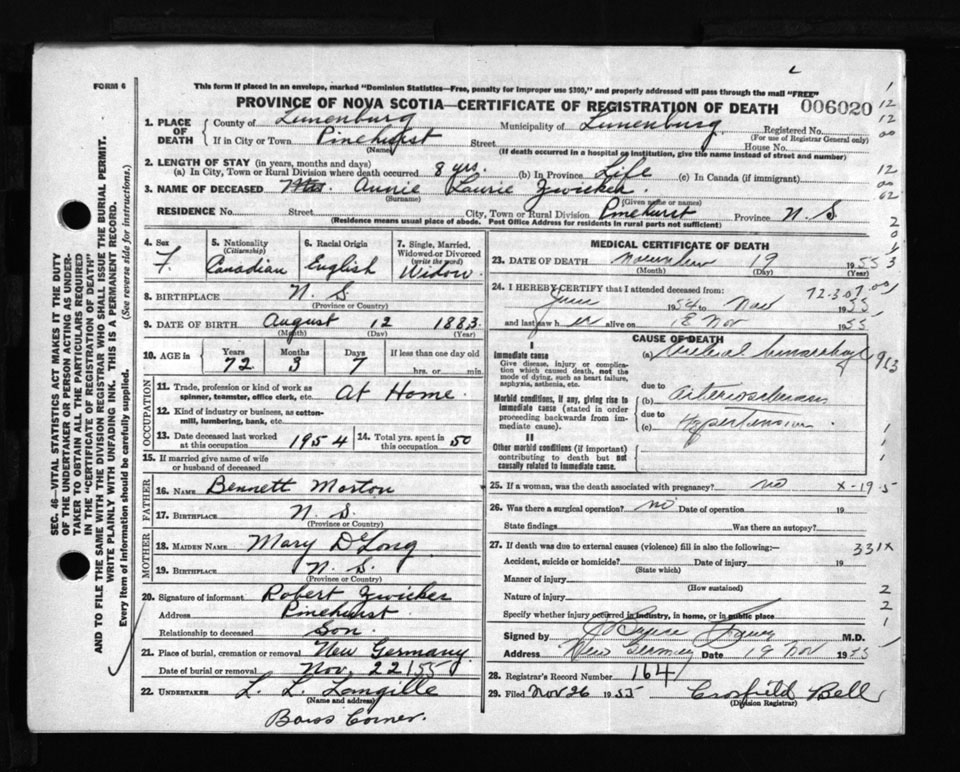 FORM 6
This form if placed in an envelope, marked "Dominion Statistics—Free, penalty for improper use $300," and properly addressed will pass through the mail "FREE"
PROVINCE OF NOVA SCOTIA—CERTIFICATE OF REGISTRATION OF DEATH 006020
1. PLACE OF DEATH County of Lunenburg Municipality of Lunenburg Registered No.
(For use of Registrar General only)
If in City or Town Pinehurst Street House No.
(Name) (If death occurred in a hospital or institution, give the name instead of street and number)
2. LENGTH OF STAY (in years, months and days)
(a) In City, Town or Rural Division where death occurred 8 yrs. (b) In Province Life (c) In Canada (if immigrant)
3. NAME OF DECEASED Mrs. Annie Laurie Zwicker.
(Surname) (Given name or names)
RESIDENCE No. Street City, Town or Rural Division Pinehurst Province N. S.
(Residence means usual place of abode. Post Office Address for residents in rural parts not sufficient)
4. Sex F.
5. Nationality (Citizenship) Canadian
6. Racial Origin English
7. Single, Married, Widowed or Divorced (write the word) Widow.
8. BIRTHPLACE N. S.
(Province or Country)
9. DATE OF BIRTH August 12 1883.
(Month) (Day) (Year)
10. AGE in Years Months Days If less than one day old
72 3 7 hrs. or min.
OCCUPATION
11. Trade, profession or kind of work as spinner, teamster, office clerk, etc. At Home.
12. Kind of industry or business, as cotton-mill, lumbering, bank, etc.
13. Date deceased last worked at this occupation 1954
14. Total yrs. spent in this occupation 50
15. If married give name of wife or husband of deceased
FATHER
16. NAME Bennett Morton
17. BIRTHPLACE N. S.
(Province or Country)
MOTHER
18. MAIDEN NAME Mary DeLong
19. BIRTHPLACE N. S.
(Province or Country)
20. Signature of informant Robert Zwicker
Address Pinehurst
Relationship to deceased Son.
21. Place of burial, cremation or removal New Germany
Date of burial or removal Nov. 22/55
22. UNDERTAKER L. L. Langille
(Name and address)
Barss Corner.
MEDICAL CERTIFICATE OF DEATH
23. DATE OF DEATH November 19 1955
(Month) (Day) (Year)
24. I HEREBY CERTIFY that I attended deceased from:
June 1954 to Nov 1955
and last saw her alive on 18 Nov 1955
CAUSE OF DEATH
I
Immediate cause
Give disease, injury or complication which caused death, not the mode of dying, such as heart failure, asphyxia, asthenia, etc.
(a) Cerebral hemorrhage
due to
Morbid conditions, if any, giving rise to immediate cause (stated in order proceeding backwards from immediate cause).
(b) Arteriosclerosis
due to
(c) Hypertension
II
Other morbid conditions (if important) contributing to death but not causally related to immediate cause.
25. If a woman, was the death associated with pregnancy? no X-19-5
26. Was there a surgical operation? no Date of operation 19
State findings Was there an autopsy?
27. If death was due to external causes (violence) fill in also the following:— 331X
Accident, suicide or homicide? Date of injury 19
(State which)
Manner of injury
(How sustained)
Nature of injury
Specify whether injury occurred in industry, in home, or in public place
Signed by M.D.
Address New Germany Date 19 Nov 1955
28. Registrar's Record Number 164
29. Filed Nov 26 1955 Crosfield Bell
(Division Registrar)
SEC. 46—VITAL STATISTICS ACT MAKES IT THE DUTY
OF THE UNDERTAKER OR PERSON ACTING AS UNDER-
TAKER TO OBTAIN ALL THE PARTICULARS REQUIRED
IN THE "CERTIFICATE OF REGISTRATION OF DEATH"
AND TO FILE THE SAME WITH THE DIVISION REGISTRAR WHO SHALL ISSUE THE BURIAL PERMIT.
WRITE PLAINLY WITH UNFADING INK. THIS IS A PERMANENT RECORD.
Every item of information should be carefully supplied. (See reverse side for instructions.)